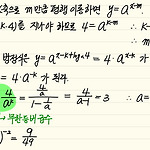 축으로 m만큼 평행이동하면 y=a^{x-m}
k-4)를 지나야 하므로 4=a^{k-m} ∴ k-
∴ m
방정식은 y=a^{x-k+log_a 4}=4·a^{x-k} 가
=4·a^{-k} 가 된다
\frac{4}{a^k}=\frac{\frac{4}{a}}{1-\frac{1}{a}}=\frac{4}{a-1}=3 ∴ a=
→무한등비급수
)^{-2}=\frac{9}{49}